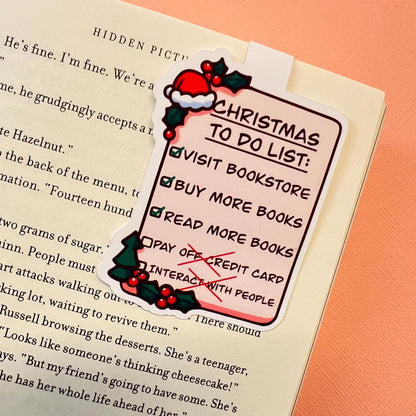 HIDDEN PICT
He's fine. I'm fine. We're a
me, he grudgingly accepts a
te Hazelnut."
o the back of the menu, to
mation. "Fourteen hund
two grams of sugar."
inn. People must
art attacks walking out
king lot, waiting to revive them." There should
Russell browsing the desserts. She's a teenager,
"Looks like someone's thinking cheesecake!"
ays. "But my friend's going to have some. She's
he has her whole life ahead of her."
CHRISTMAS
TO DO LIST:
VISIT BOOKSTORE
BUY MORE BOOKS
READ MORE BOOKS
PAY OFF CREDIT CARD
INTERACT WITH PEOPLE